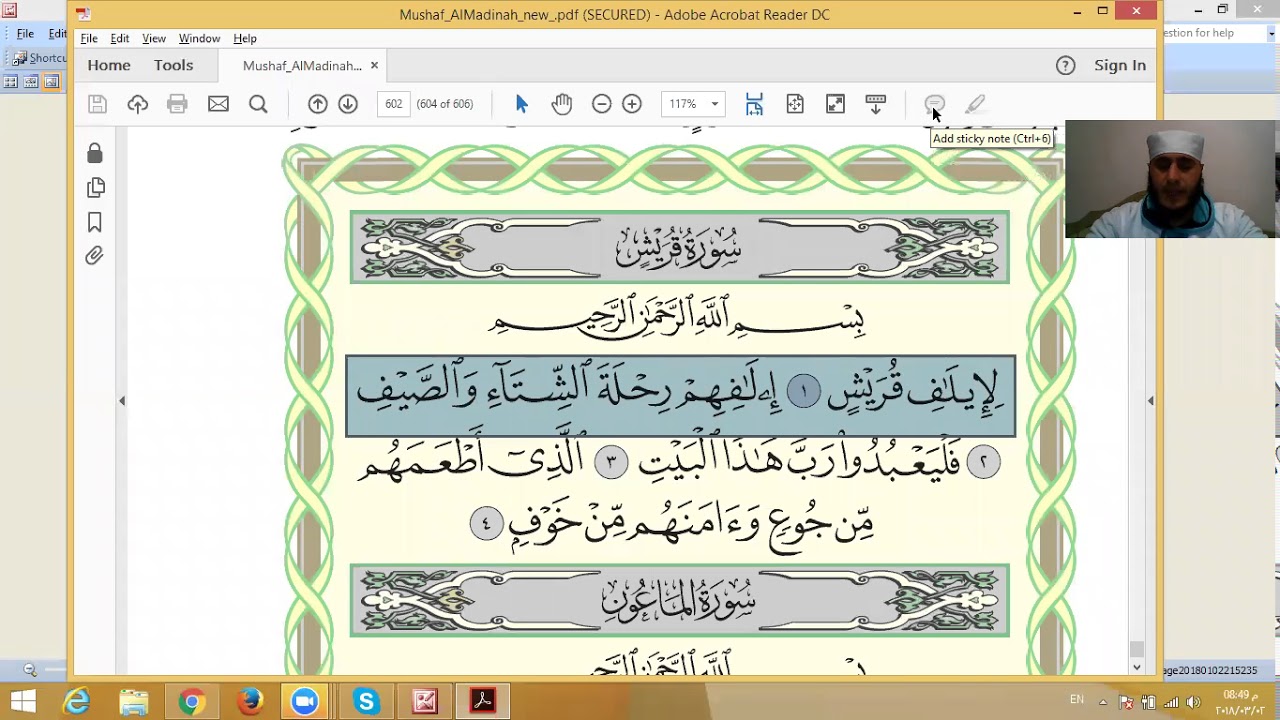 Mushaf_AlMadinah_new_.pdf (SECURED) - Adobe Acrobat Reader DC
File Edit View Window Help
File
Home Tools Mushaf_AlMadinah... × Sign In
estion for help
Shortcu
602 (604 of 606) 117%
Add sticky note (Ctrl+6)
سُورَةُ قُرَيْشٍ
بِسْمِ ٱللَّهِ ٱلرَّحْمَٰنِ ٱلرَّحِيمِ
لِإِيلَٰفِ قُرَيْشٍ ١ إِۦلَٰفِهِمْ رِحْلَةَ ٱلشِّتَآءِ وَٱلصَّيْفِ
٢ فَلْيَعْبُدُوا۟ رَبَّ هَٰذَا ٱلْبَيْتِ ٣ ٱلَّذِىٓ أَطْعَمَهُم
مِّن جُوعٍ وَءَامَنَهُم مِّنْ خَوْفٍۭ ٤
سُورَةُ ٱلْمَاعُونِ
بِسْمِ ٱللَّهِ ٱلرَّحْمَٰنِ ٱلرَّحِيمِ
age20180102215235
EN
08:49 م
٢٠١٨/٠٣/٠٢